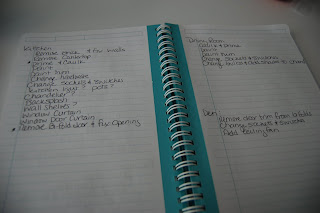 Kitchen
Remove brick &
Remove countertop
Prime & Caulk
Paint
Paint trim
Change hardware
Change sockets & switches
light? pots?
Chandelier?
Backsplash
Wall Shelves?
Window Curtain
Window Door Curtain
Remove bi-fold door & Fix Opening
Dining Room
Caulk & Prime
Paint
Paint trim
Change Sockets & Switches
Change
Den
Remove door trim from bi-folds
Change sockets & switches
Add Ceiling Fan